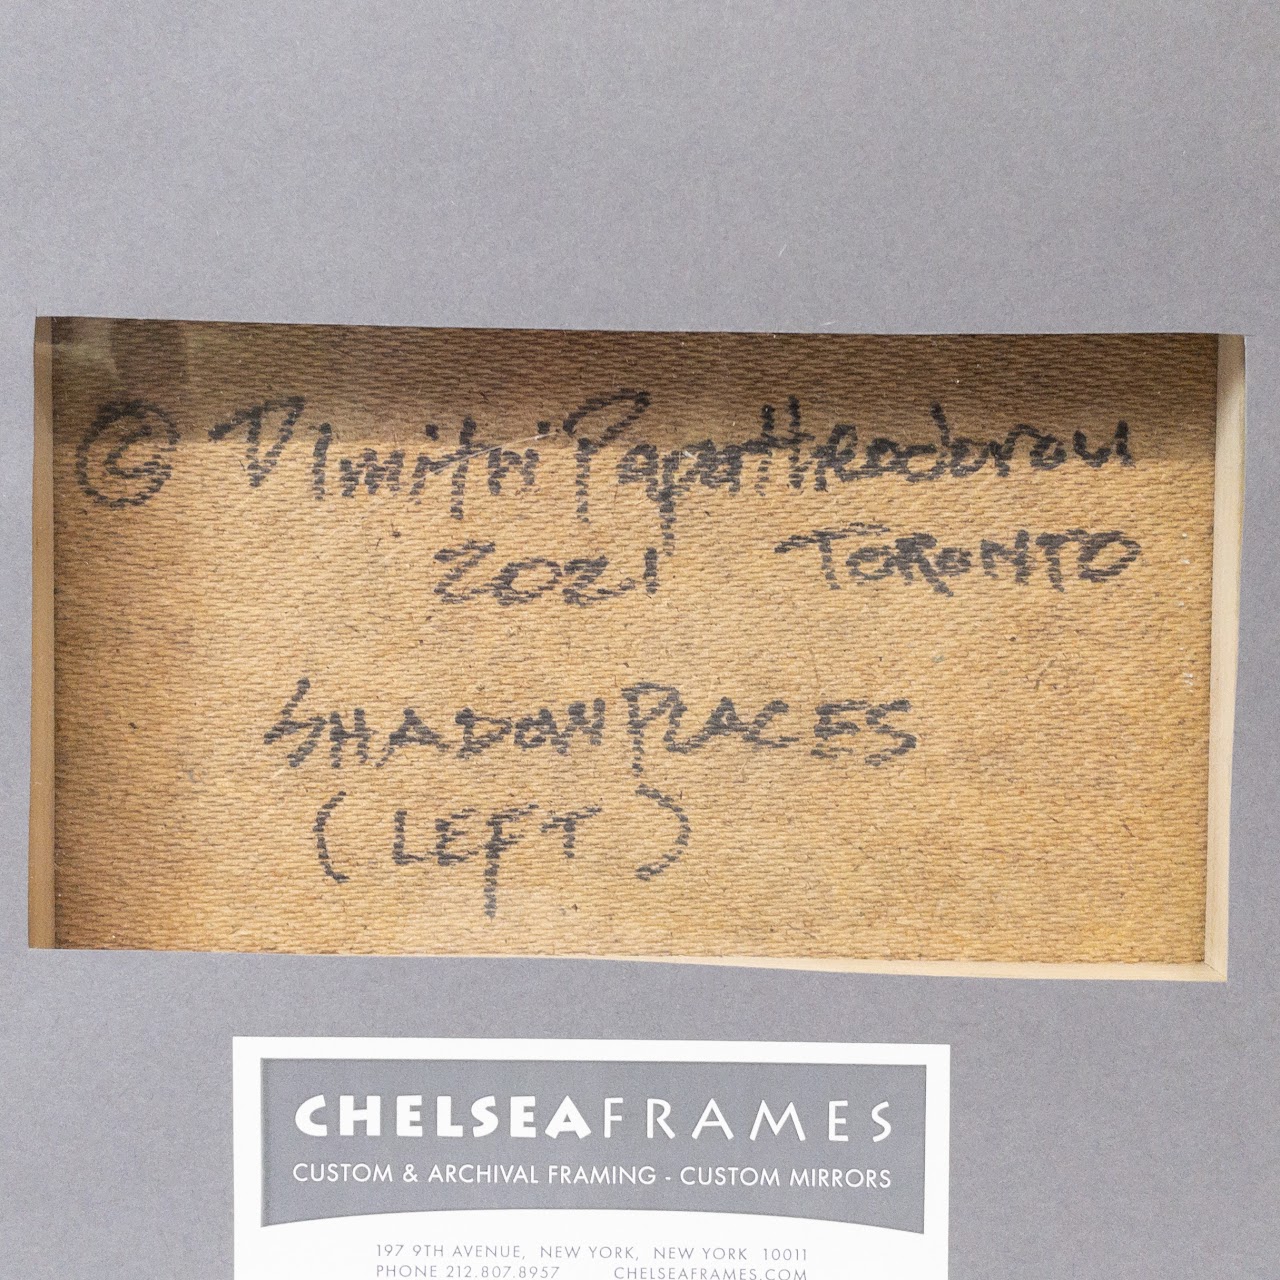 © Dimitri Papatheodorou
2021 TORONTO
SHADOW PLACES
(LEFT)
CHELSEAFRAMES
CUSTOM & ARCHIVAL FRAMING - CUSTOM MIRRORS
197 9TH AVENUE, NEW YORK, NEW YORK 10011
PHONE 212.807.8957 CHELSEAFRAMES.COM